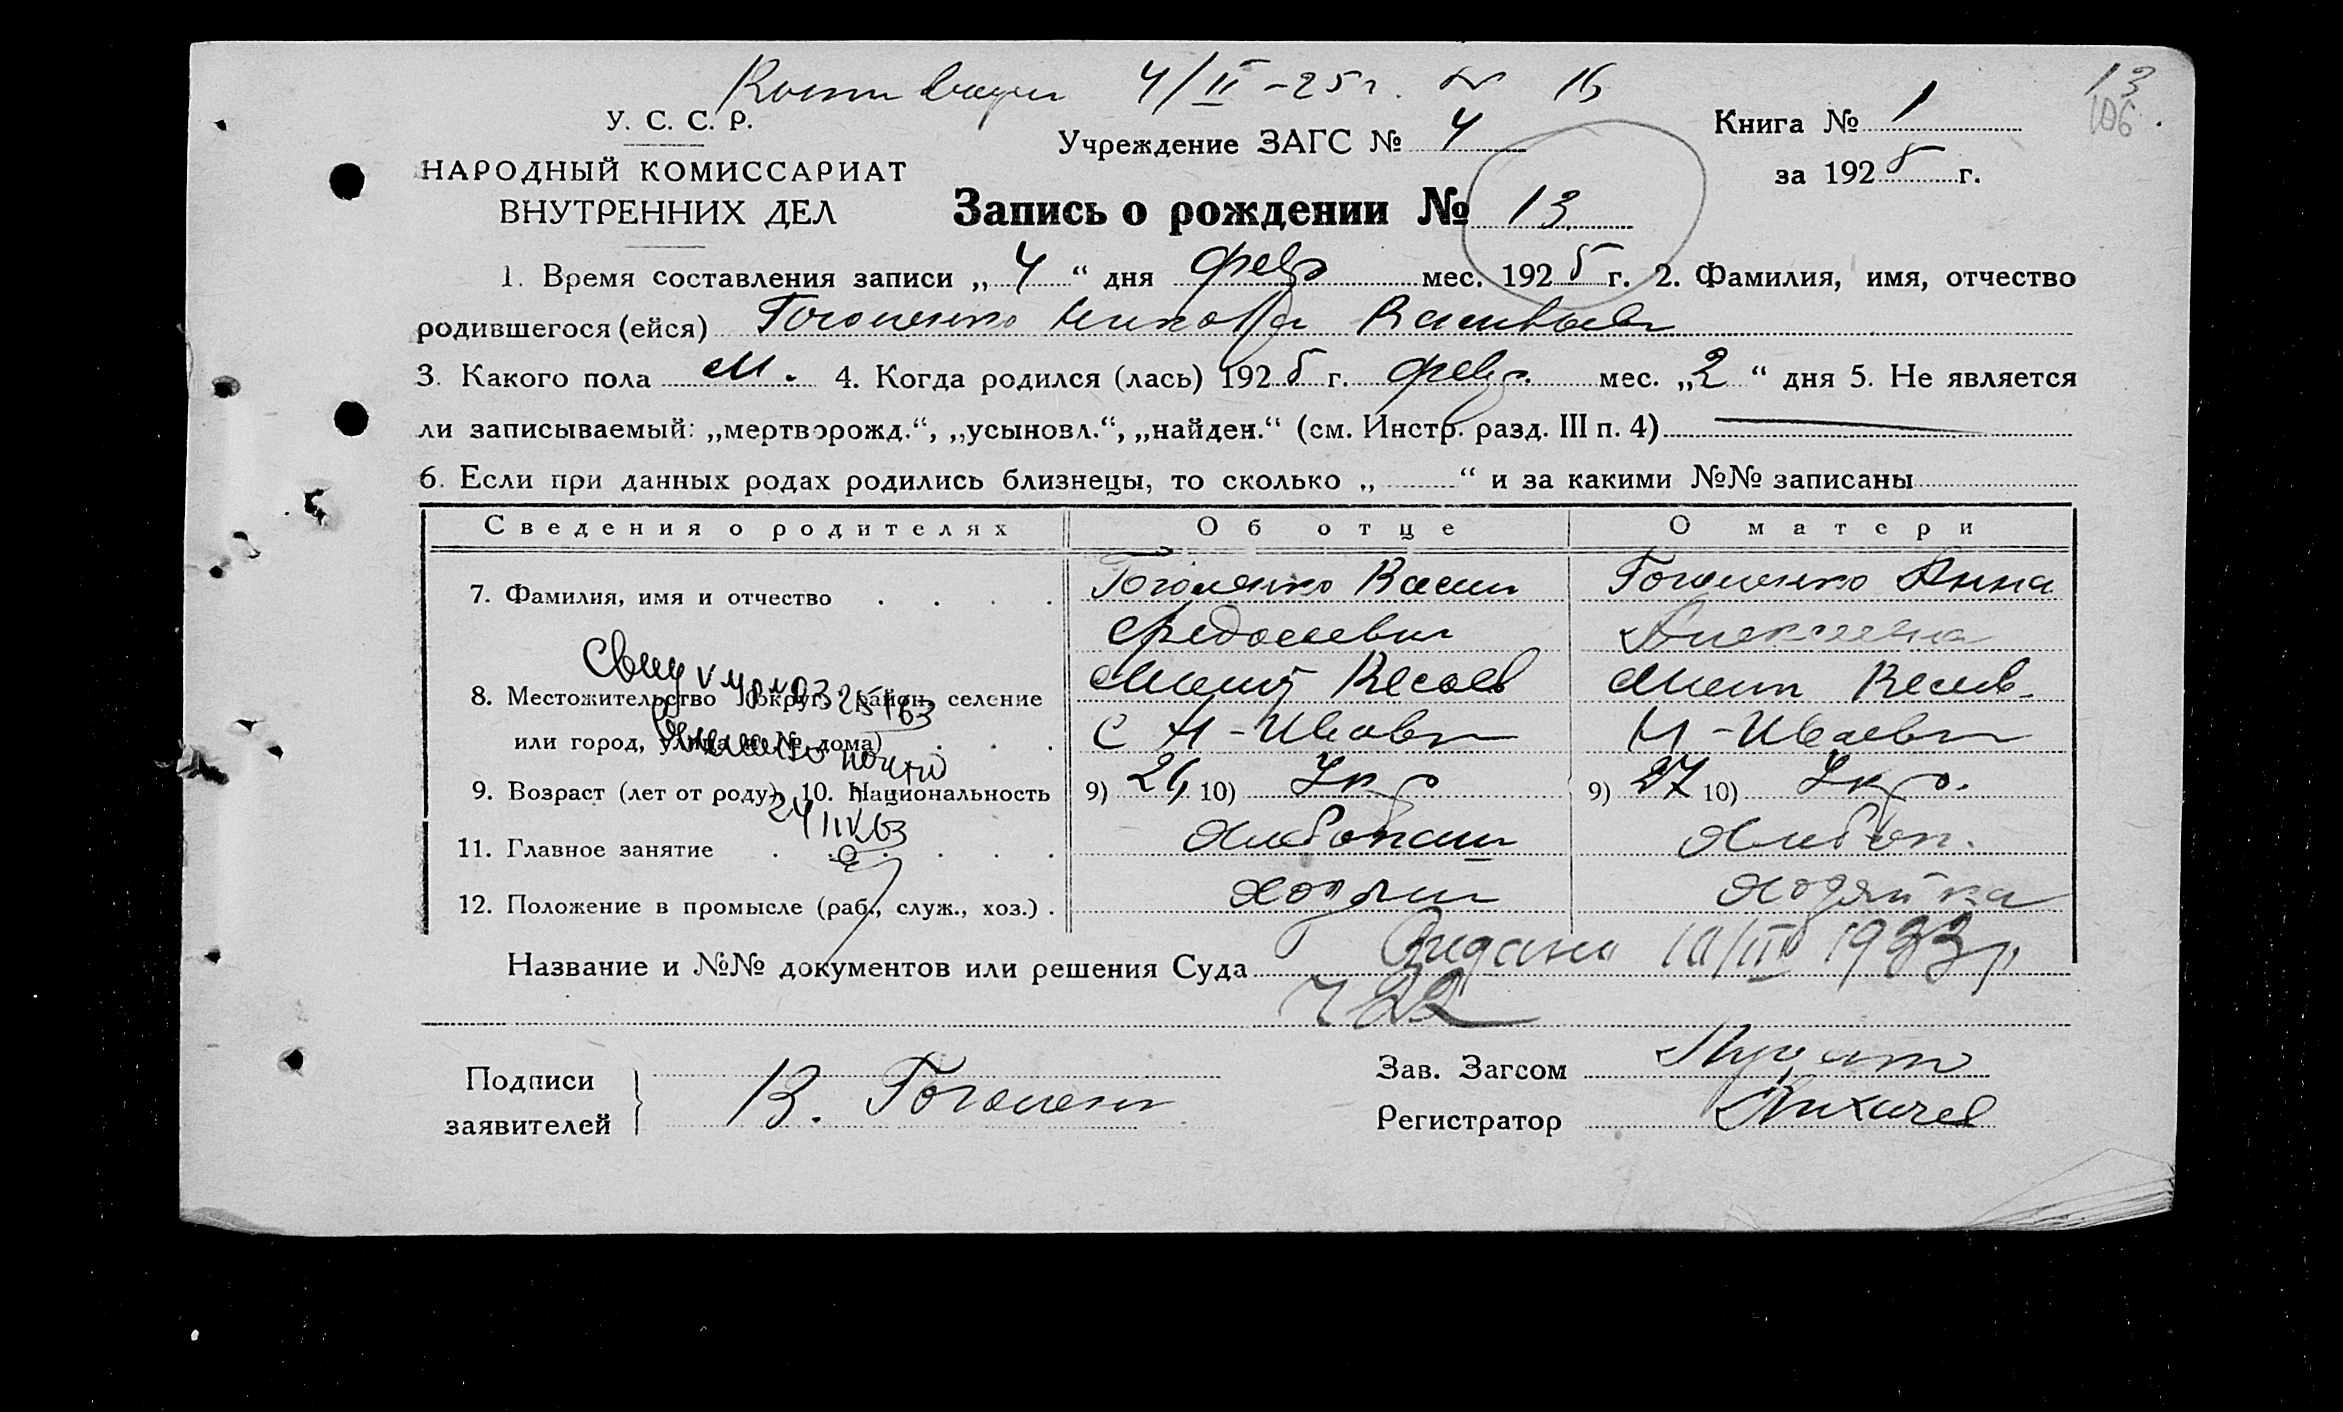 4/II - 25 г. № 15
13
106
У. С. С. Р.
НАРОДНЫЙ КОМИССАРИАТ
ВНУТРЕННИХ ДЕЛ
Учреждение ЗАГС № 4
Книга № 1
за 1925 г.
Запись о рождении № 13
1. Время составления записи „ 4 “ дня февр мес. 1925 г. 2. Фамилия, имя, отчество
родившегося (ейся) Гоголенко Васильев
3. Какого пола м. 4. Когда родился (лась) 1925 г. февр. мес. „ 2 “ дня 5. Не является
ли записываемый: „мертворожд.“, „усыновл.“, „найден.“ (см. Инстр. разд. III п. 4)
6. Если при данных родах родились близнецы, то сколько „ “ и за какими №№ записаны
Сведения о родителях Об отце О матери
7. Фамилия, имя и отчество Гоголенко Васил Гоголенко Анна
Федосеевич Алексеевна
8. Местожительство (округ, район, селение
или город, улица и № дома)
9. Возраст (лет от роду) 10. Национальность 9) 26 10) Укр 9) 27 10) Укр.
24/IV 63
11. Главное занятие Хлебопаш Хлебоп.
12. Положение в промысле (раб., служ., хоз.) Хозяин Хозяйка
Название и №№ документов или решения Суда 10/III 1933 р.
722
Подписи
заявителей
В. Гоголенк
Зав. Загсом
Регистратор